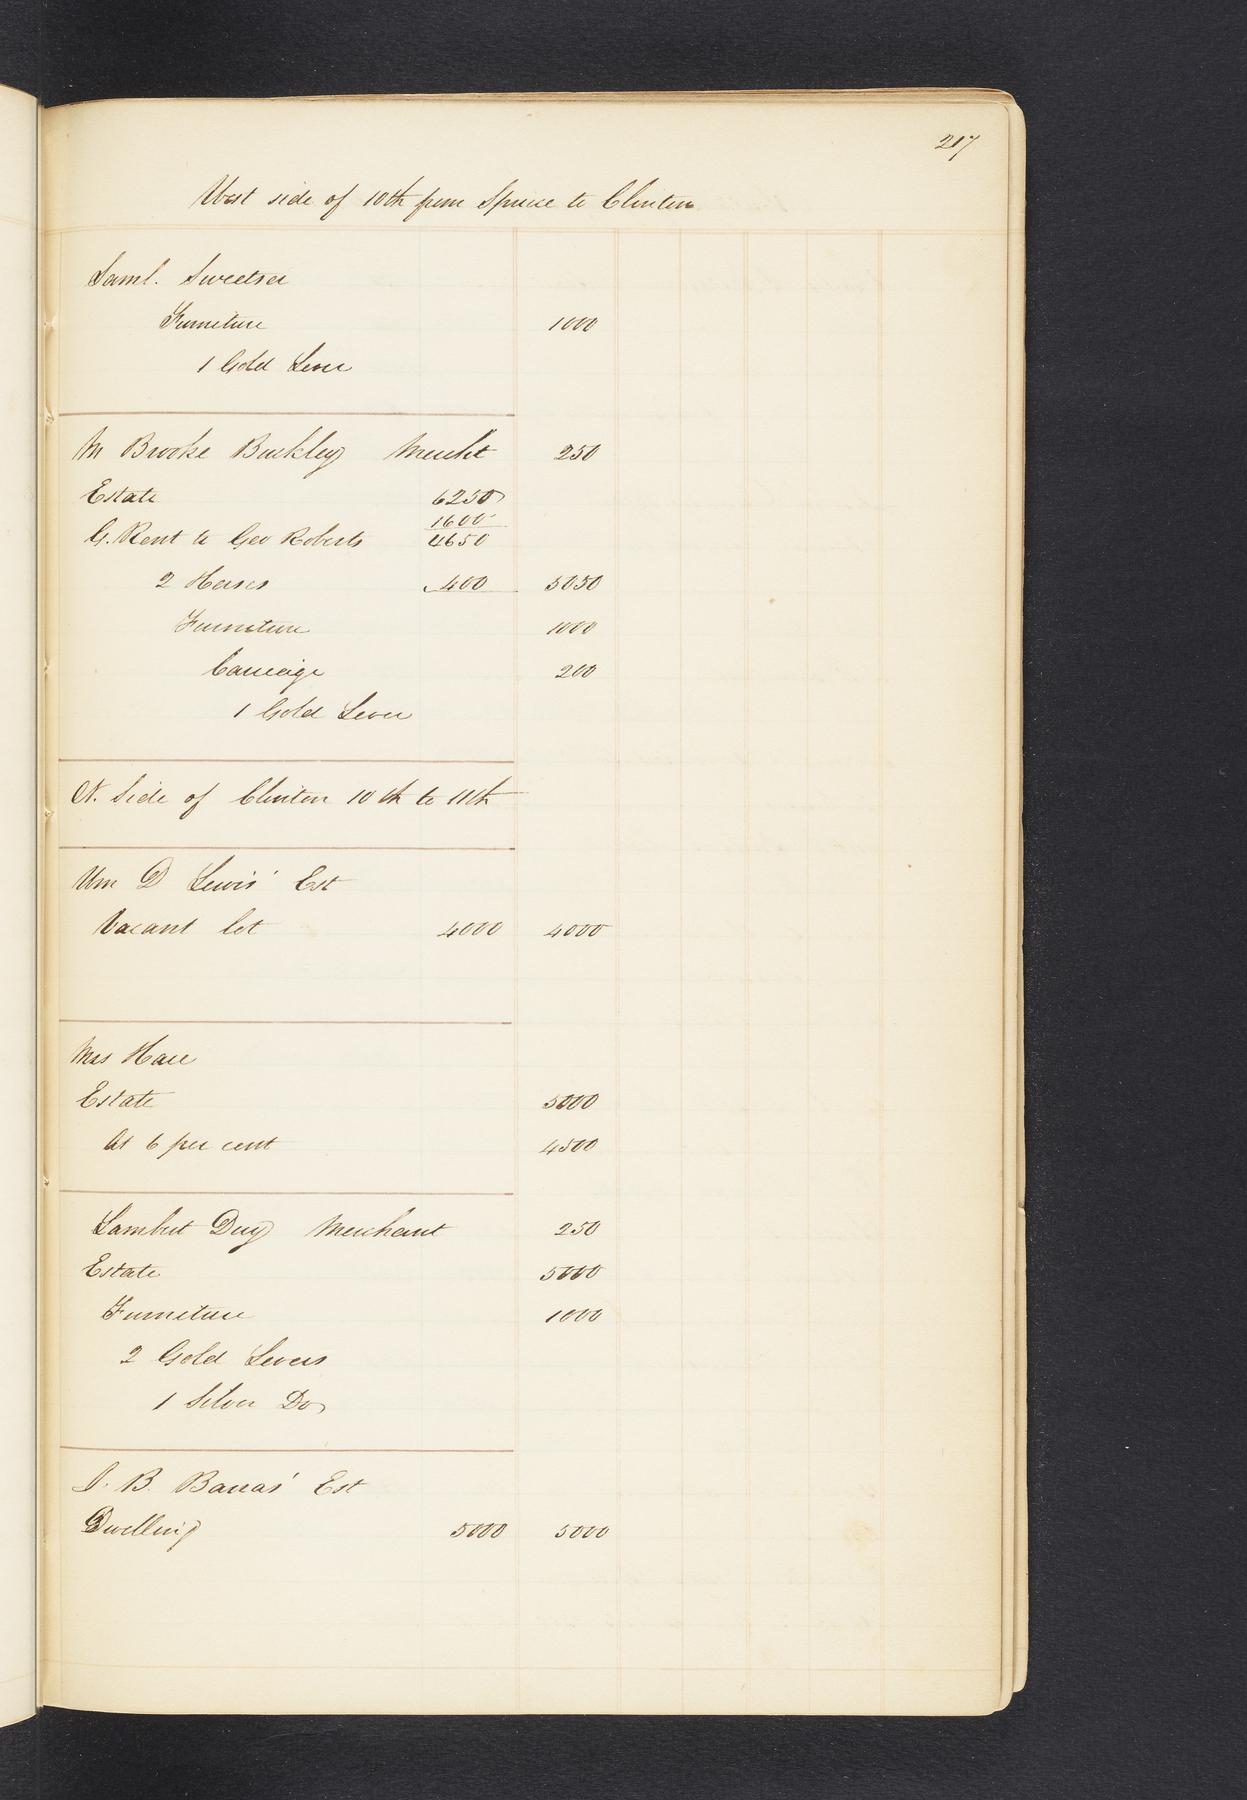 217
West side of 10th from Spruce to Clinton
Saml. Sweetser
Furniture 1000
1 Gold Lever
M Brooke Buckley Mercht 250
Estate 6250
1600
G. Rent to Geo Roberts 4650
2 Horses 400 5050
Furniture 1000
Carriage 200
1 Gold Lever
N. Side of Clinton 10th to 11th
Wm D Lewis' Est
Vacant lot 4000 4000
Mrs Hare
Estate 5000
At 6 per cent 4500
Lambert Duy Merchant 250
Estate 5000
Furniture 1000
2 Gold Levers
1 Silver Do
B. Est
Dwelling 5000 5000